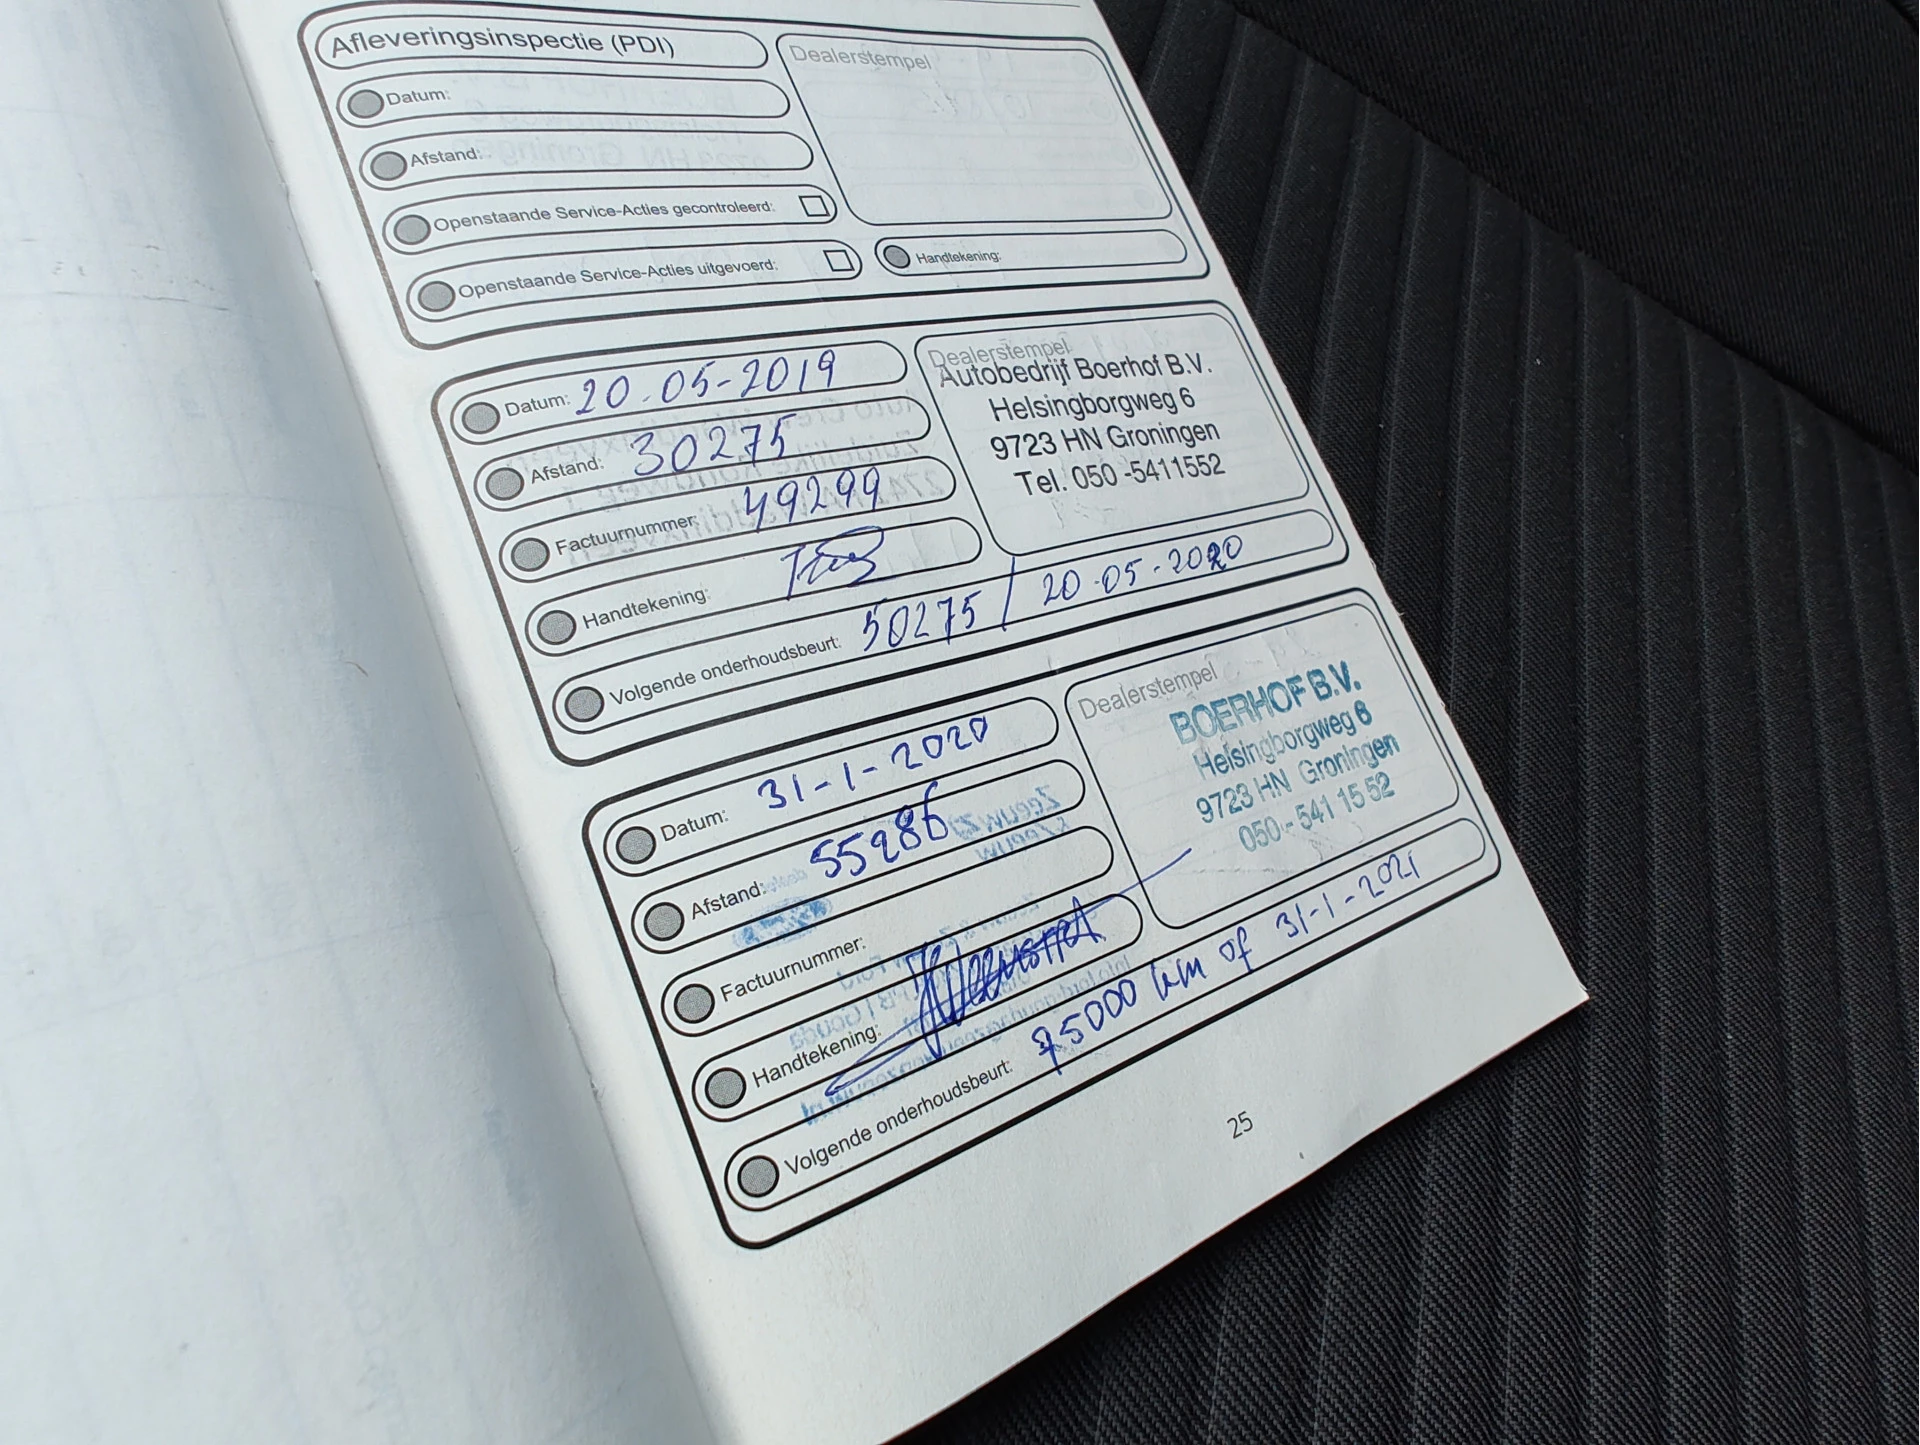 Afleveringsinspectie (PDI)
Dealerstempel
Datum:
Afstand:
Openstaande Service-Acties gecontroleerd:
Openstaande Service-Acties uitgevoerd:
Handtekening:
Datum: 20-05-2019
Afstand: 30275
Factuurnummer: 49299
Handtekening:
Volgende onderhoudsbeurt: 50275 / 20-05-2020
Dealerstempel
Autobedrijf Boerhof B.V.
Helsingborgweg 6
9723 HN Groningen
Tel. 050 -5411552
Datum: 31-1-2020
Afstand: 55286
Factuurnummer:
Handtekening:
Volgende onderhoudsbeurt: 75000 km of 31-1-2021
Dealerstempel
BOERHOF B.V.
Helsingborgweg 6
9723 HN Groningen
050 - 541 15 52
25